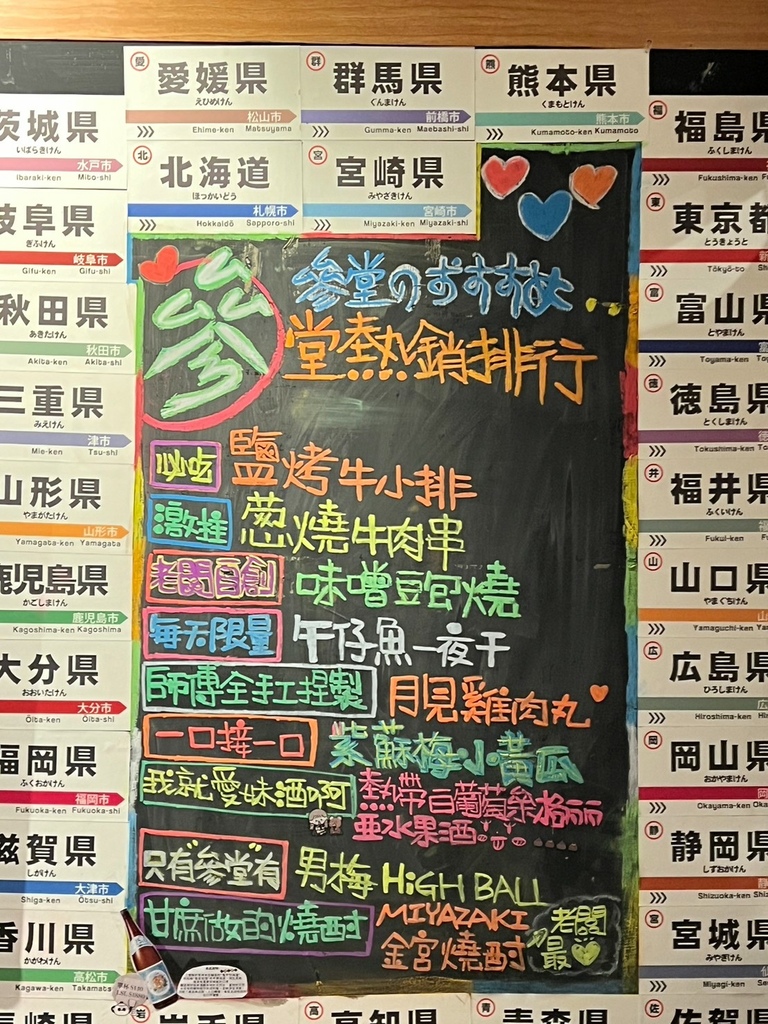 愛 愛媛県
えひめけん
松山市
Ehime-ken Matsuyama
群 群馬県
ぐんまけん
前橋市
Gumma-ken Maebashi-shi
熊 熊本県
くまもとけん
熊本市
Kumamoto-ken Kumamoto
北 北海道
ほっかいどう
札幌市
Hokkaidō Sapporo-shi
宮 宮崎県
みやざきけん
宮崎市
Miyazaki-ken Miyazaki-shi
茨城県
いばらきけん
水戸市
Ibaraki-ken Mito-shi
岐阜県
ぎふけん
岐阜市
Gifu-ken Gifu-shi
秋田県
あきたけん
秋田市
Akita-ken Akita-shi
三重県
みえけん
津市
Mie-ken Tsu-shi
山形県
やまがたけん
山形市
Yamagata-ken Yamagata
鹿児島県
かごしまけん
鹿児島市
Kagoshima-ken Kagoshima
大分県
おおいたけん
大分市
Ōita-ken Ōita-shi
福岡県
ふくおかけん
福岡市
Fukuoka-ken Fukuoka-shi
滋賀県
しがけん
大津市
Shiga-ken Ōtsu-shi
香川県
かがわけん
高松市
Kagawa-ken Takamats
參
參堂のおすすめ
堂熱銷排行
必吃 鹽烤牛小排
激推 蔥燒牛肉串
老闆自創 味噌豆包燒
每天限量 午仔魚一夜干
師傅全手工捏製 月見雞肉丸
一口接一口 紫蘇梅小黃瓜
我就愛妹酒啊 熱帶白葡萄桑格莉亞水果酒
只有參堂有 男梅 HiGH BALL
甘蔗做的燒酎 MIYAZAKI
金宮燒酎
老闆最
福 福島県
ふくしまけん
Fukushima-ken Fu
東 東京都
とうきょうと
Tōkyō-to
富 富山県
とやまけん
Toyama-ken Toy
徳 徳島県
とくしまけん
Tokushima-ken To
井 福井県
ふくいけん
Fukui-ken Fu
山 山口県
やまぐちけん
Yamaguchi-ken Ya
広 広島県
ひろしまけん
Hiroshima-ken Hir
岡 岡山県
おかやまけん
Okayama-ken Oka
静 静岡県
しずおかけん
Shizuoka-ken Shi
宮 宮城県
みやぎけん
Miyagi-ken Se
岩 岩手県
高 高知県
青 青森県
佐 佐賀県